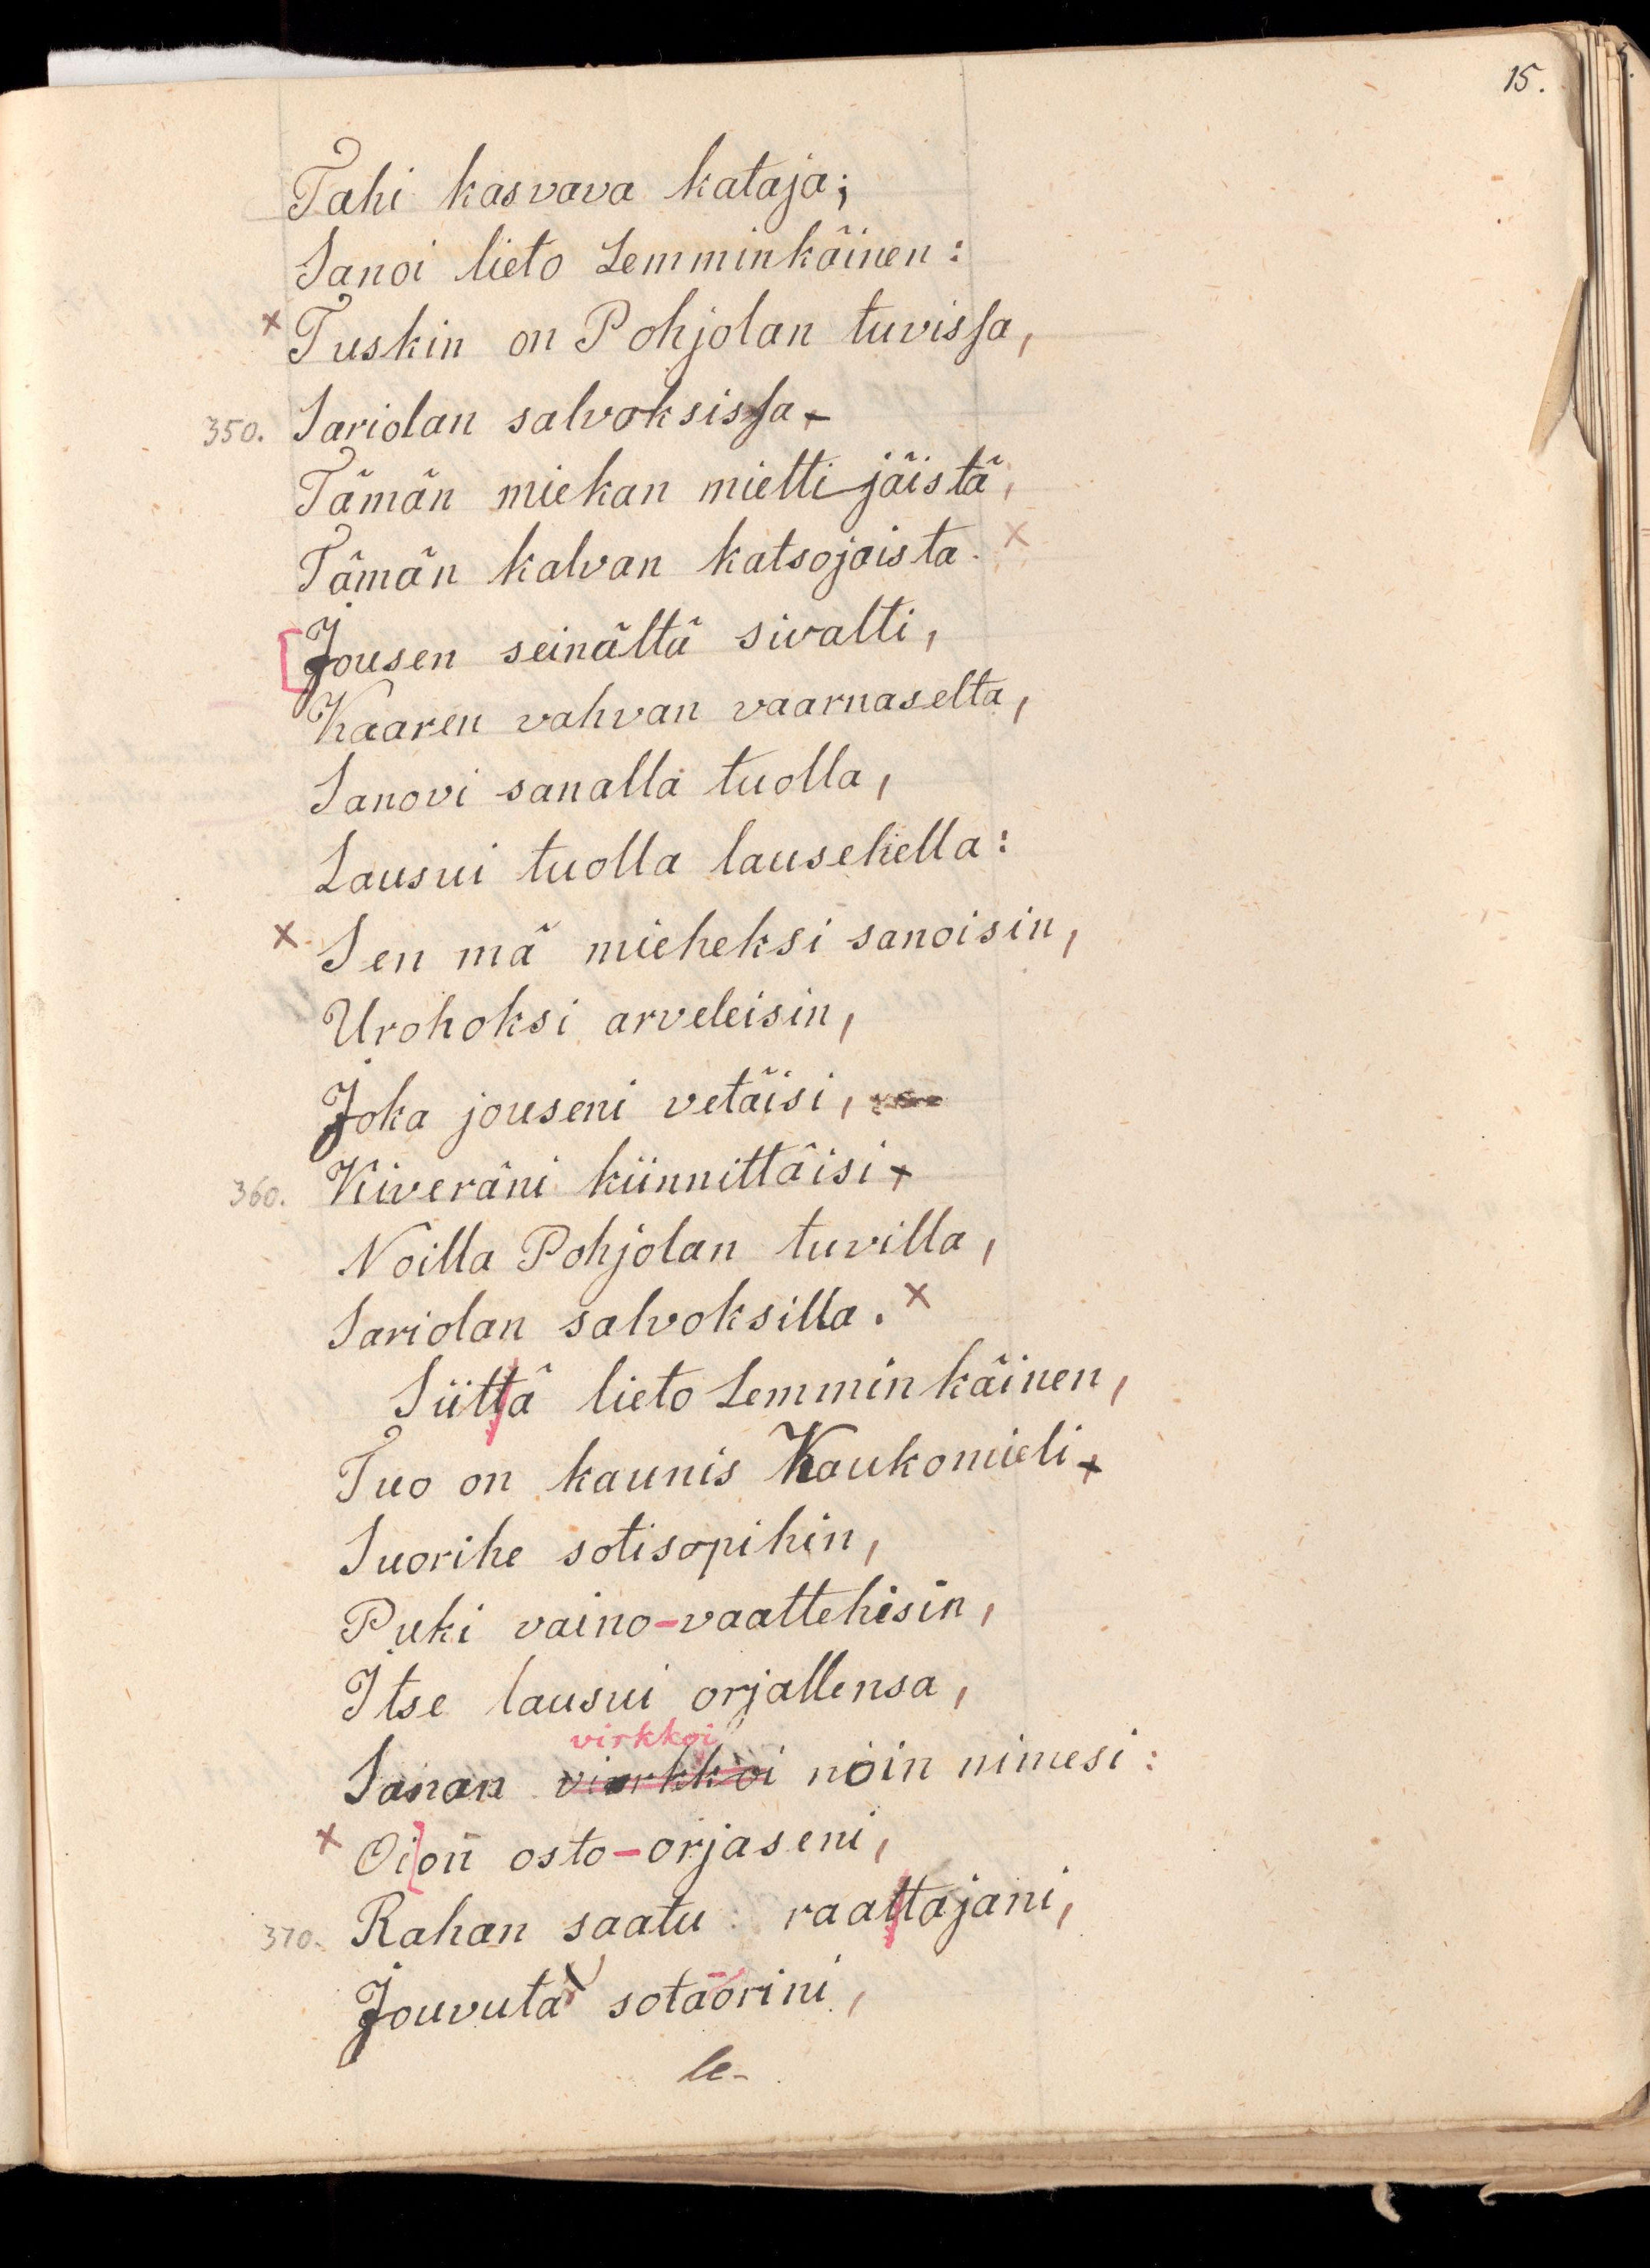 15.
Tahi kasvava kataja;
Sanoi lieto Lemminkäinen:
× Tuskin on Pohjolan tuvissa,
350. Sariolan salvoksissa
Tämän miekan miettijäistä,
Tämän kalvan katsojaista. ×
[Jousen seinältä sivalti,
Kaaren vahvan vaarnaselta,
Sanovi sanalla tuolla,
Lausui tuolla lausehella:
× Sen mä mieheksi sanoisin,
Urohoksi arveleisin,
Joka jouseni vetäisi,
360. Kiveräni kiinnittäisi
Noilla Pohjolan tuvilla,
Sariolan salvoksilla. ×
Siittä lieto Lemminkäinen,
Tuo on kaunis Kaukomieli
Suorihe sotisopihin,
Puki vaino-vaattehisin,
Itse lausui orjallensa,
virkkoi
Sanan virkkoi noin nimesi:
× Oi]on osto-orjaseni,
370. Rahan saatu raattajani,
Jouvuta sotaorini,
le-